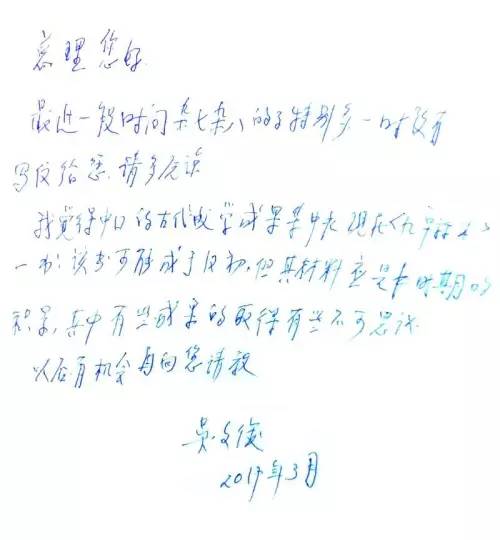 总理您好
最近一段时间杂七杂八的事特别多,一时没有
写信给您,请多谅
我觉得中国的古代数学成果集中现在《九章算术》
一书:该书可能成于汉初,但其材料应是长时期的
积累,其中有些成果的取得有些不可思议
以后有机会再向您请教
吴文俊
2017年3月